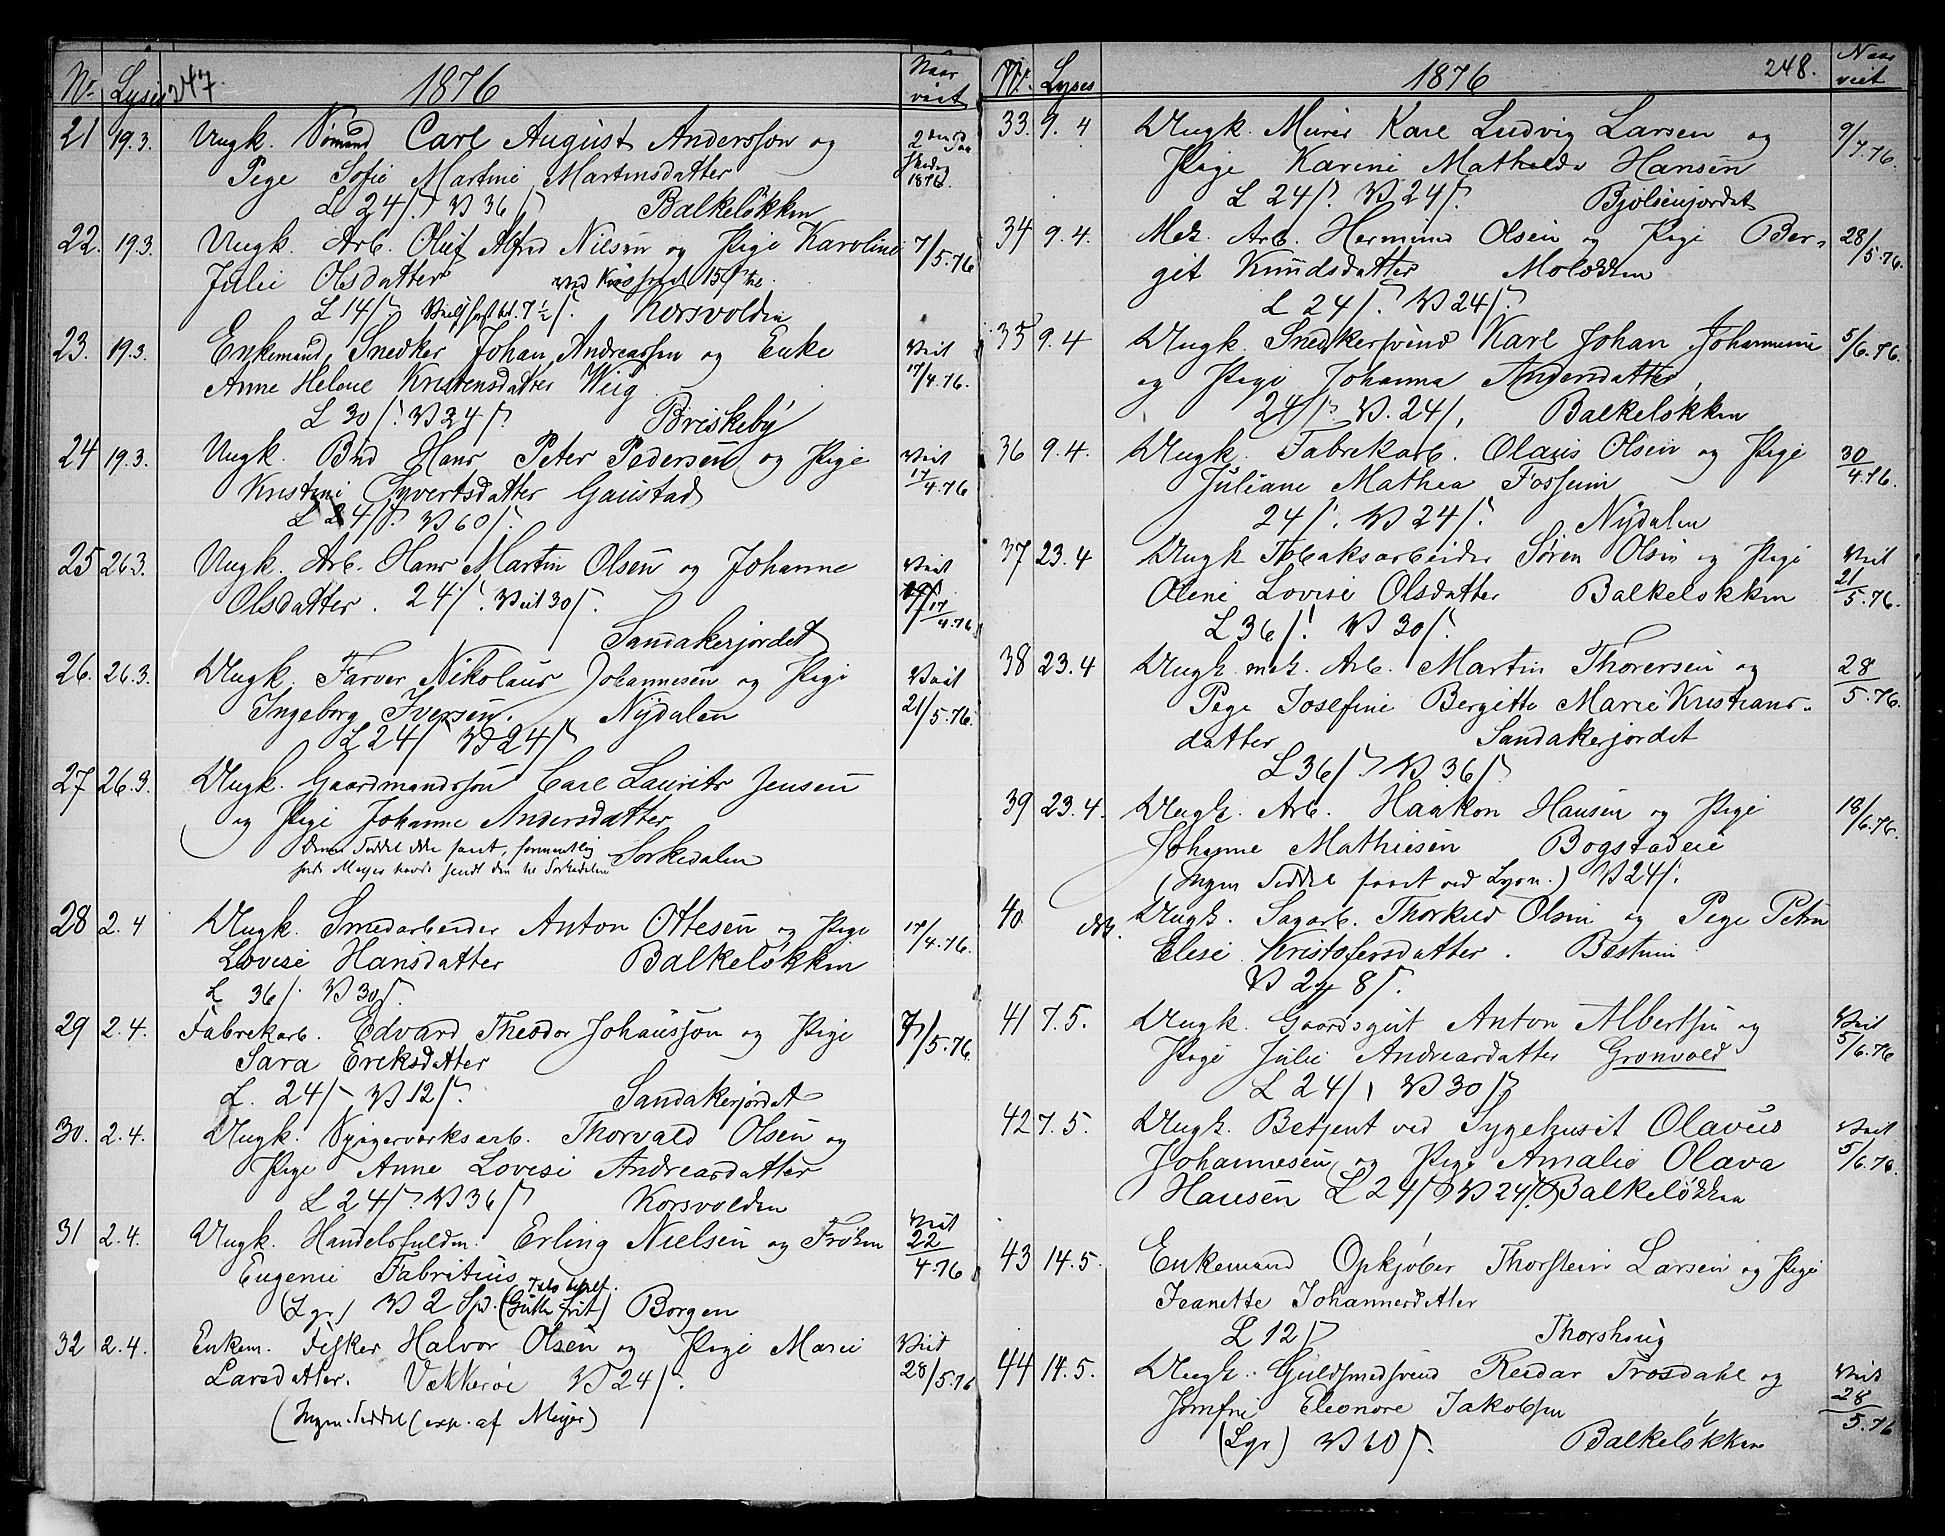 Nr. Lyses 247. 1876 Naar viet
21 19.3. Ungk. Sømand Carl August Andersson og
Pige Sofie Martine Martinsdatter 1876
L 24/. V 36/ Balkeløkken
22. 19.3. Ungk. Arb. Oluf Alfred Nielsen og Pige Karoline 7/5.76
Julie Olsdatter
L 14/. 7½/. Korsvolden
23. 19.3. Enkemand, Snedker Johan Andreassen og Enke Viet
Anne Helene Kristensdatter Wiig 17/4.76.
L 30/. V 24/. Briskeby
24 19.3. Ungk. Hans Peter Pedersen og Pige Viet
Kristine Syvertsdatter Gaustad 17/4.76
L 24/. V 60/.
25 26.3. Ungk. Arb. Hans Martin Olsen og Johanne Viet
Olsdatter. 24/. Viet 30/. 17/4.76
Sandakerjordet
26. 26.3. Ungk. Farver Nikolaus Johannesen og Pige Viet
Ingeborg Iversen. Nydalen 21/5.76.
L 24/ V 24/
27 26.3. Ungk. Gaardmandssøn Carl Laurits Jensen
og Pige Johanne Andersdatter
Denne Seddel ikke faaet, formentlig Sørkedalen
fordi Meyer havde sendt den til Sørkedalen
28 2.4 Ungk. Smedarbeider Anton Ottesen og Pige 17/4.76.
Lovise Hansdatter Balkeløkken
L 36/. V 30/.
29 2.4. Fabrikarb. Edvard Theodor Johansson og Pige 7/5.76.
Sara Eriksdatter
L. 24/ V 12/. Sandakerjordet
30. 2.4. Ungk. Spigerverksarb. Thorvald Olsen og
Pige Anne Lovise Andreasdatter
L 24/. V 36/ Korsvolden
31 2.4. Ungk. Handelsfuldm. Erling Nielsen og Frøken Viet
Eugenie Fabritius 22/4.76
(Lgr) V 2 Spd. Borgen
32 2.4. Enkem. Fisker Halvor Olsen og Pige Marie Viet
Larsdatter. Vækkerøe V 24/. 28/5.76
(Ingen Seddel (exp. af Meyer)
Nr. Lyses 1876 248. Naar viet
33. 9.4 Ungk. Murer Karl Ludvig Larsen og 9/7.76.
Pige Karine Mathilde Hansen
L 24/. V 24/. Bjølsenjordet
34 9.4. Mek. Arb. Hermund Olsen og Pige Ber- 28/5.76.
git Knudsdatter Moløkken
L 24/. V 24/.
35 9.4 Ungk. Snedkersvend Karl Johan Johannesen 5/6.76.
og Pige Johanna Andersdatter
24/ V. 24/, Balkeløkken
36 9.4. Ungk. Fabrikarb. Olaus Olsen og Pige 30/4.76.
Juliane Mathea Fosseim
24/. V 24/. Nydalen
37 23.4 Ungk. Tobaksarbeider Søren Olsen og Pige Viet
Oline Lovise Olsdatter Balkeløkken 21/5.76.
L 36/! V 30/.
38 23.4 Ungk. mek. Arb. Martin Thorersen og 28/5.76.
Pige Josefine Bergitte Marie Kristians-
datter Sandakerjordet
L 36/. V 36/.
39 23.4. Ungk. Arb. Haakon Hansen og Pige 18/6.76.
Johanne Mathisen Bogstadeie
(Ingen Seddel faaet ved Lysn.) V 24/.
40 Ungk. Sagarb. Thorkild Olsen og Pige Petra
Elise Kristofersdatter. Bestum
V 24 8/.
41 7.5. Ungk. Gaardsgut Anton Albertsen og Viet
Pige Julie Andreasdatter Grønvold 5/6.76
L 24/, V 30/
42 7.5. Ungk. Betjent ved Sygehuset Olavus Viet
Johannesen, og Pige Amalie Olava 5/6.76.
Hansen L 24/ V 24/ Balkeløkken
43 14.5. Enkemand Opkjøber Thorstein Larsen og Pige
Jeanette Johannesdatter
L 12/ Thorshaug
44 14.5. Ungk. Guldsmedsvend Reidar Trosdahl og Viet
Jomfru Eleonore Jakobsen 28/5.76
(Lgr) V 60/. Balkeløkken